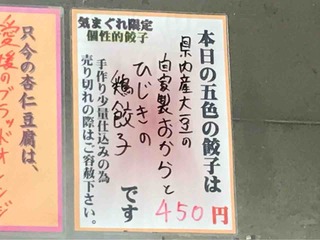 本日の五色の餃子は
県内産大豆の
自家製おからと
ひじきの
鶏餃子
です
450円
気まぐれ限定
個性的餃子
手作り少量仕込みの為
売り切れの際はご容赦下さい。
只今の杏仁豆腐は、
愛媛のブラッドオレンジ